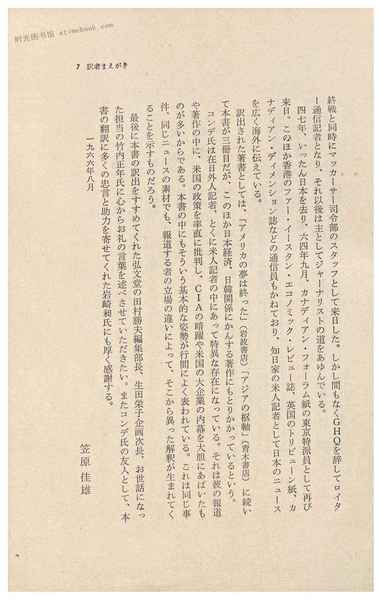 时光图书馆 etimebook.com
7 訳者まえがき
終戦と同時にマッカーサー司令部のスタッフとして来日した。しかし間もなくGHQを辞してロイタ
ー通信記者となり、それ以後は主としてジャーナリストの道をあゆんでいる。
四七年、いったん日本を去り、六四年九月、カナディアン・フォーラム紙の東京特派員として再び
来日、このほか香港のファー・イースタン・エコノミック・レビュー誌、英国のトリビューン紙、カ
ナディアン・ディメンション誌などの通信員もかねており、知日家の米人記者として日本のニュース
を広く海外に伝えている。
訳出された著書としては、「アメリカの夢は終った」(岩波書店)「アジアの枢軸」(青木書店)に続い
て本書が三冊目だが、このほか日本経済、日韓関係にかんする著作にもとりかかっているという。
コンデ氏は在日外人記者、とくに米人記者の中にあって特異な存在になっている。それは彼の報道
や著作の中に、米国の政策を率直に批判し、CIAの暗躍や米国の大企業の内幕を大胆にあばいたも
のが多いからである。本書の中にもそういう基本的な姿勢が行間によく表われている。これは同じ事
件、同じニュースの素材でも、報道する者の立場の違いによって、そこから異った解釈が生まれてく
ることを示すものだろう。
最後に本書の訳出をすすめてくれた弘文堂の田村勝夫編集部長、生田栄子企画次長、お世話になっ
た担当の竹内正年氏に心からお礼の言葉を述べさせていただきたい。またコンデ氏の友人として、本
書の翻訳に多くの忠言と助力を寄せてくれた岩崎昶氏にも厚く感謝する。
一九六六年八月
笠原佳雄